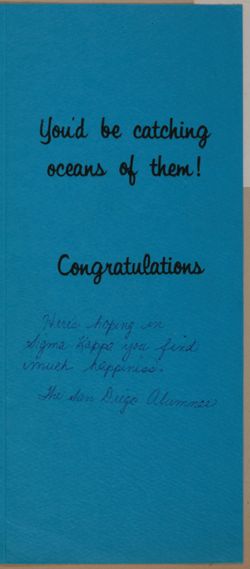 You'd be catching
oceans of them!
Congratulations
Here's hoping in
Sigma Kappa you find
much happiness.
The San Diego Alumnae